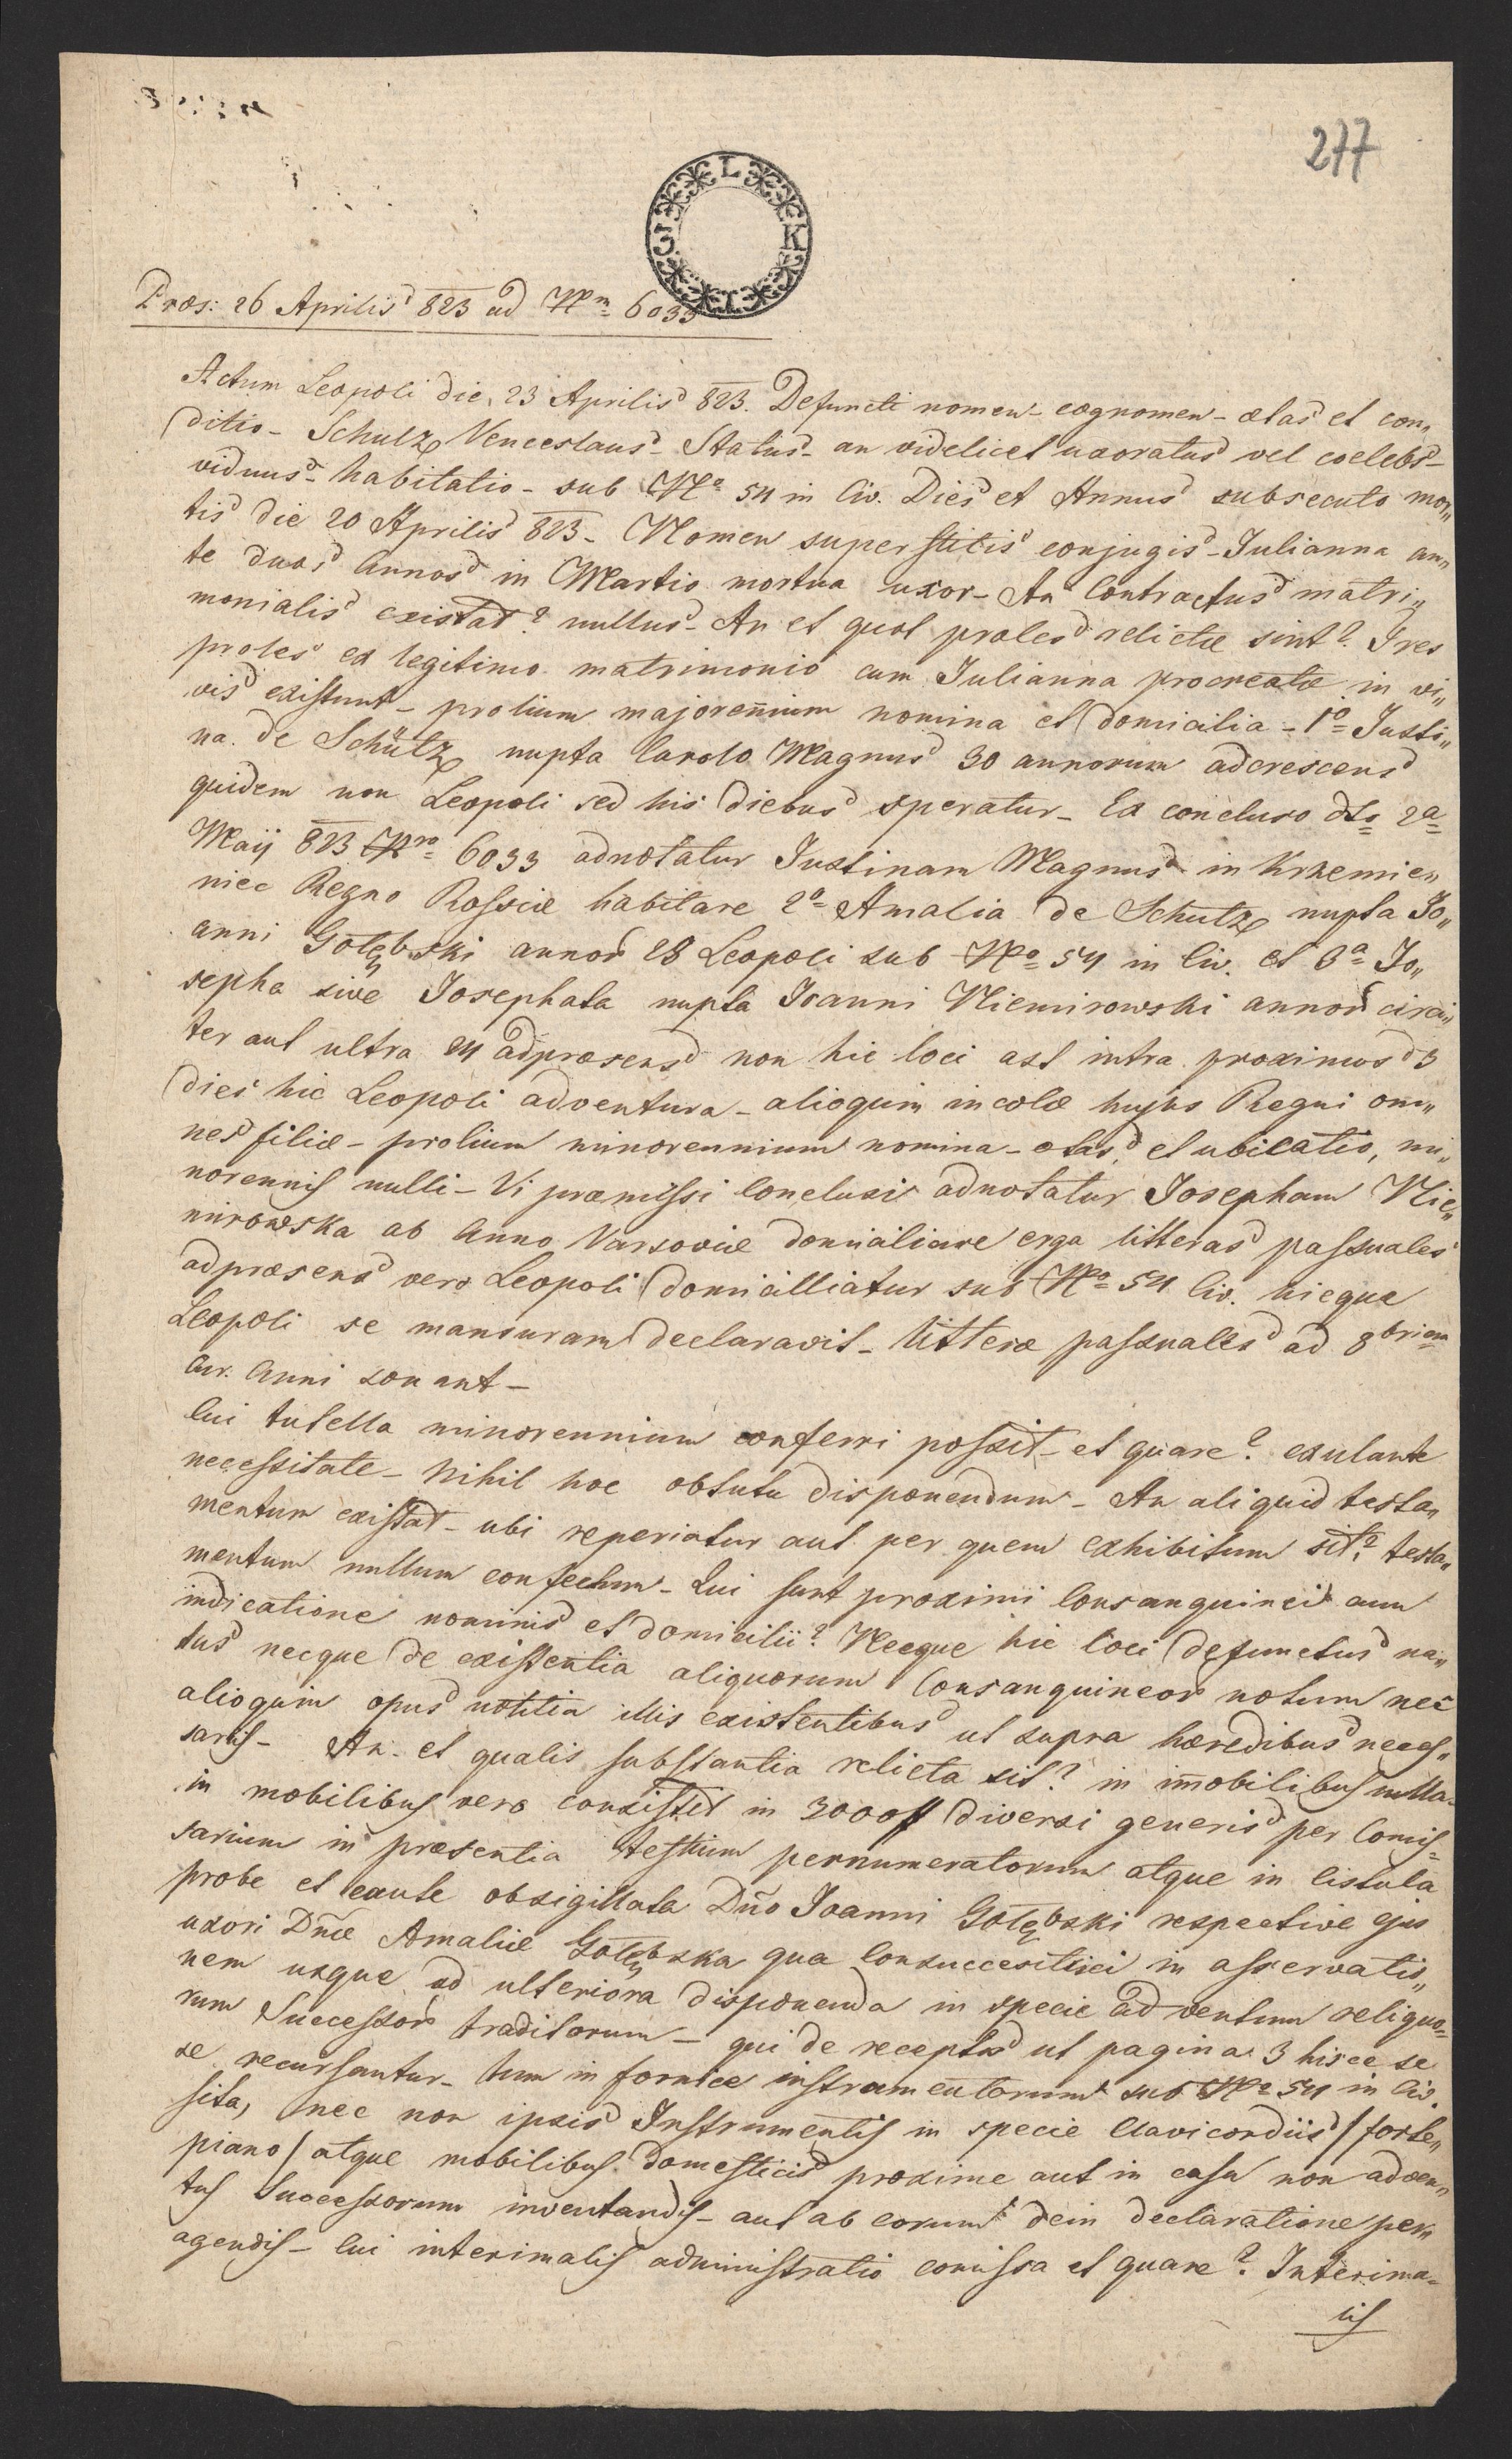 277
L
3 K
Præs: 26 Aprilis 823 ad Nm 6033
Actum Leopoli die 23 Aprilis 823. Defuncti nomen - cognomen - ætas et con„
ditio - Schulz Venceslaus - Status - an videlicet uxoratus vel coelebs -
viduus - habitatio - sub No 54 in Civ. Dies et Annus subsecuto mor„
tis die 20 Aprilis 823 - Nomen superstitis conjugis - Julianna an„
te duos Annos in Martio mortua uxor - An Contractus matri„
monialis existat? nullus - An et quot proles relictæ sint? Tres
proles ex legitimo matrimonio cum Julianna procreatæ in vi„
vis existunt - prolium majorennium nomina et domicilia - 1o Justi„
na de Schütz nupta Carolo Magnus 30 annorum adcrescens
quidem non Leopoli sed his diebus speratur - Ex concluso dto 2a
Maij 823 Nro 6033 adnotatur Justinam Magnus in Krzemie„
niec Regno Rossiæ habitare 2o Amalia de Schutz nupta Jo„
anni Gołębski annor 28 Leopoli sub No 54 in Civ. et 3a Jo„
sepha sive Josephata nupta Joanni Niemirowski annor circi„
ter aut ultra 24 adpræsens non hic loci ast intra proximos 3
dies hic Leopoli adventura - alioquin incolæ hujus Regni om„
nes filiæ - prolium minorennium nomina - ætas, et ubicatio, mi„
norennis nulli - Vi præmissi Conclusi adnotatur Josepham Nie„
mirowska ab Anno Varsoviæ domiciliare erga litteras passuales
adpræsens vero Leopoli domicilliatur sub No 54 Civ. hicque
Leopoli se mansuram declaravit - litteræ passuales ad 8briem
Cur. Anni sonant -
Cui tutella minorennium conferri possit - et quare? exulante
necessitate - Nihil hoc obtutu disponendum - An aliquid testa„
mentum existat - ubi reperiatur aut per quem exhibitum sit? testa„
mentum nullum confectum - Qui sunt proximi Consanguinei cum
indicatione nominis et domicilii? Necque hic loci defunctus na„
tus necque de existentia aliquorum Consanguineor notum nec
alioquin opus notitia illis existentibus ut supra hæredibus neces„
sariis - An et qualis substantia relicta sit? in immobilibus nulla -
in mobilibus vero consistit in 3000 ff diversi generis per Comis=
sarium in præsentia testium pernumeratorum atque in Cistula
probe et caute obsigillata Dño Joanni Gołębski respective ejus
uxori Dñæ Amaliæ Gołębska qua Consuccestrici in asservatio„
nem usque ad ulteriora disponenda in specie adventum reliquo=
rum Successor traditorum - qui de receptis ut pagina 3 hisce se
se recursantur - tum in fornice instrumentorum sub No 54 in Civ.
sita, nec non ipsis Instrumentis in specie Clavicordiis / forte„
piano / atque mobilibus domesticis proxime aut in casu non adven„
tus Successorum inventandis - aut ab eorum dein declaratione per„
agendis - Cui interimalis administratio comissa et quare? Interima=
lis